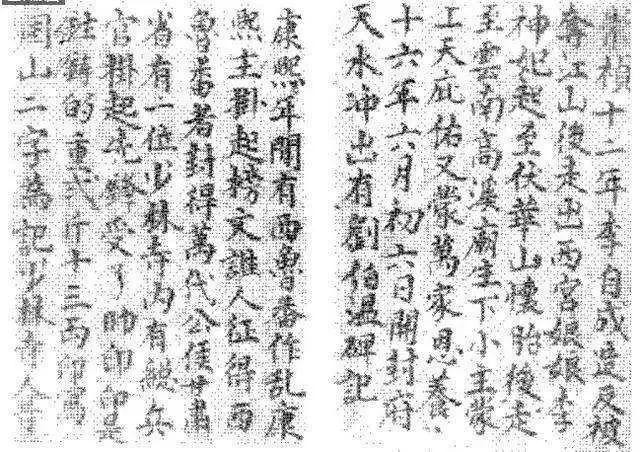 禎十二年李自成造反被
奪江山後走出西宮娘娘李
神妃起至伏華山懷胎後走
至雲南高溪廟生下小主蒙
上天庇佑又蒙萬家恩養
十六年六月初六日開封府
天水冲出有劉伯温碑記
康熙年間有西魯番作乱康
熙主掛起榜文誰人征得西
魯番者封得萬代公侯甘肅
省有一位少林寺内有總兵
官掛起先鋒受了帥印印是
鉄鑄的重弍斤十三両印為
開山二字為記少林寺